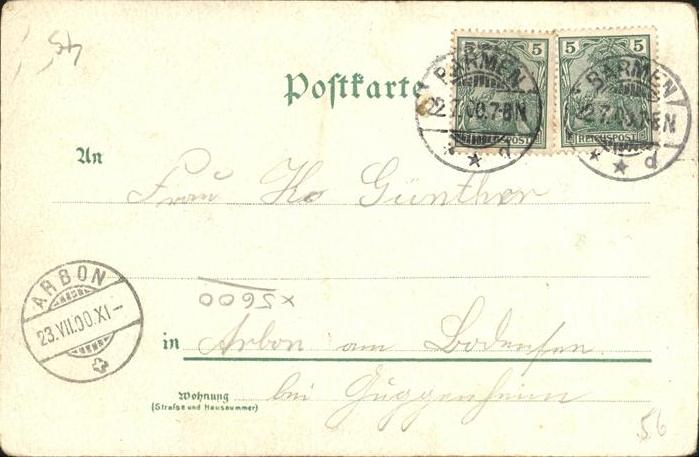 45
Postkarte
5 5
REICHSPOST
BARMEN
22.7.00.7-8N
* * d
BARMEN
22.7.00.7-8N
* * d
An
Frau Ko Günther
ARBON
23.VII.00.XI-
x5600
in Arbon am Bodensee
Wohnung
(Strafse und Hausnummer)
bei Guggenheim
56